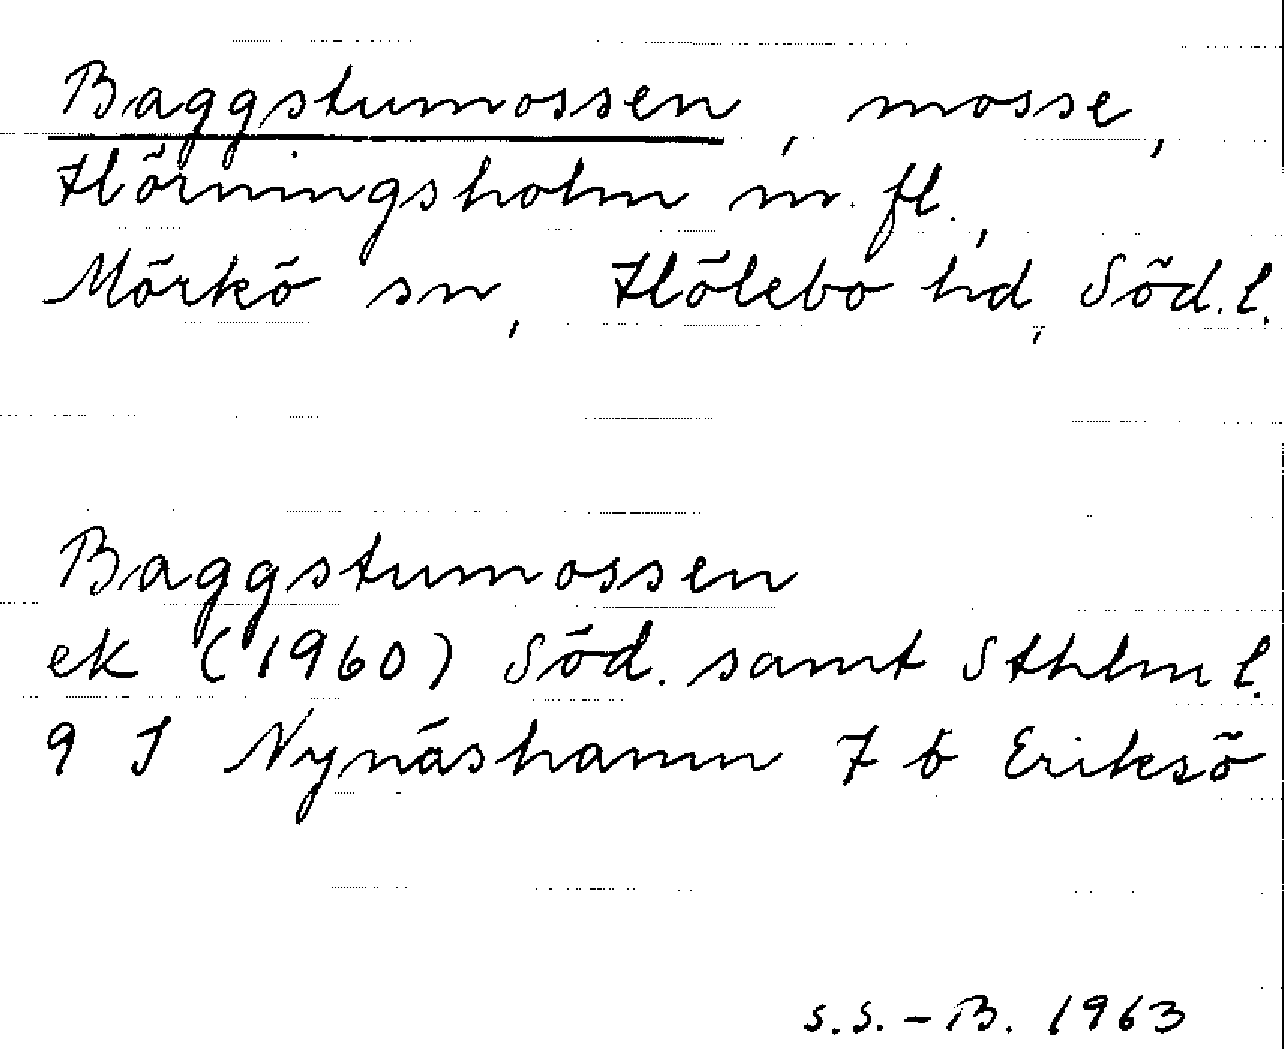 Baggstumossen, mosse,
Hörningsholm m. fl.,
Mörkö sn, Hölebo hd, Söd. l.
Baggstumossen
ek (1960) Söd. samt Sthlm l.
9 I Nynäshamn 7 b Eriksö
S.S.-B. 1963